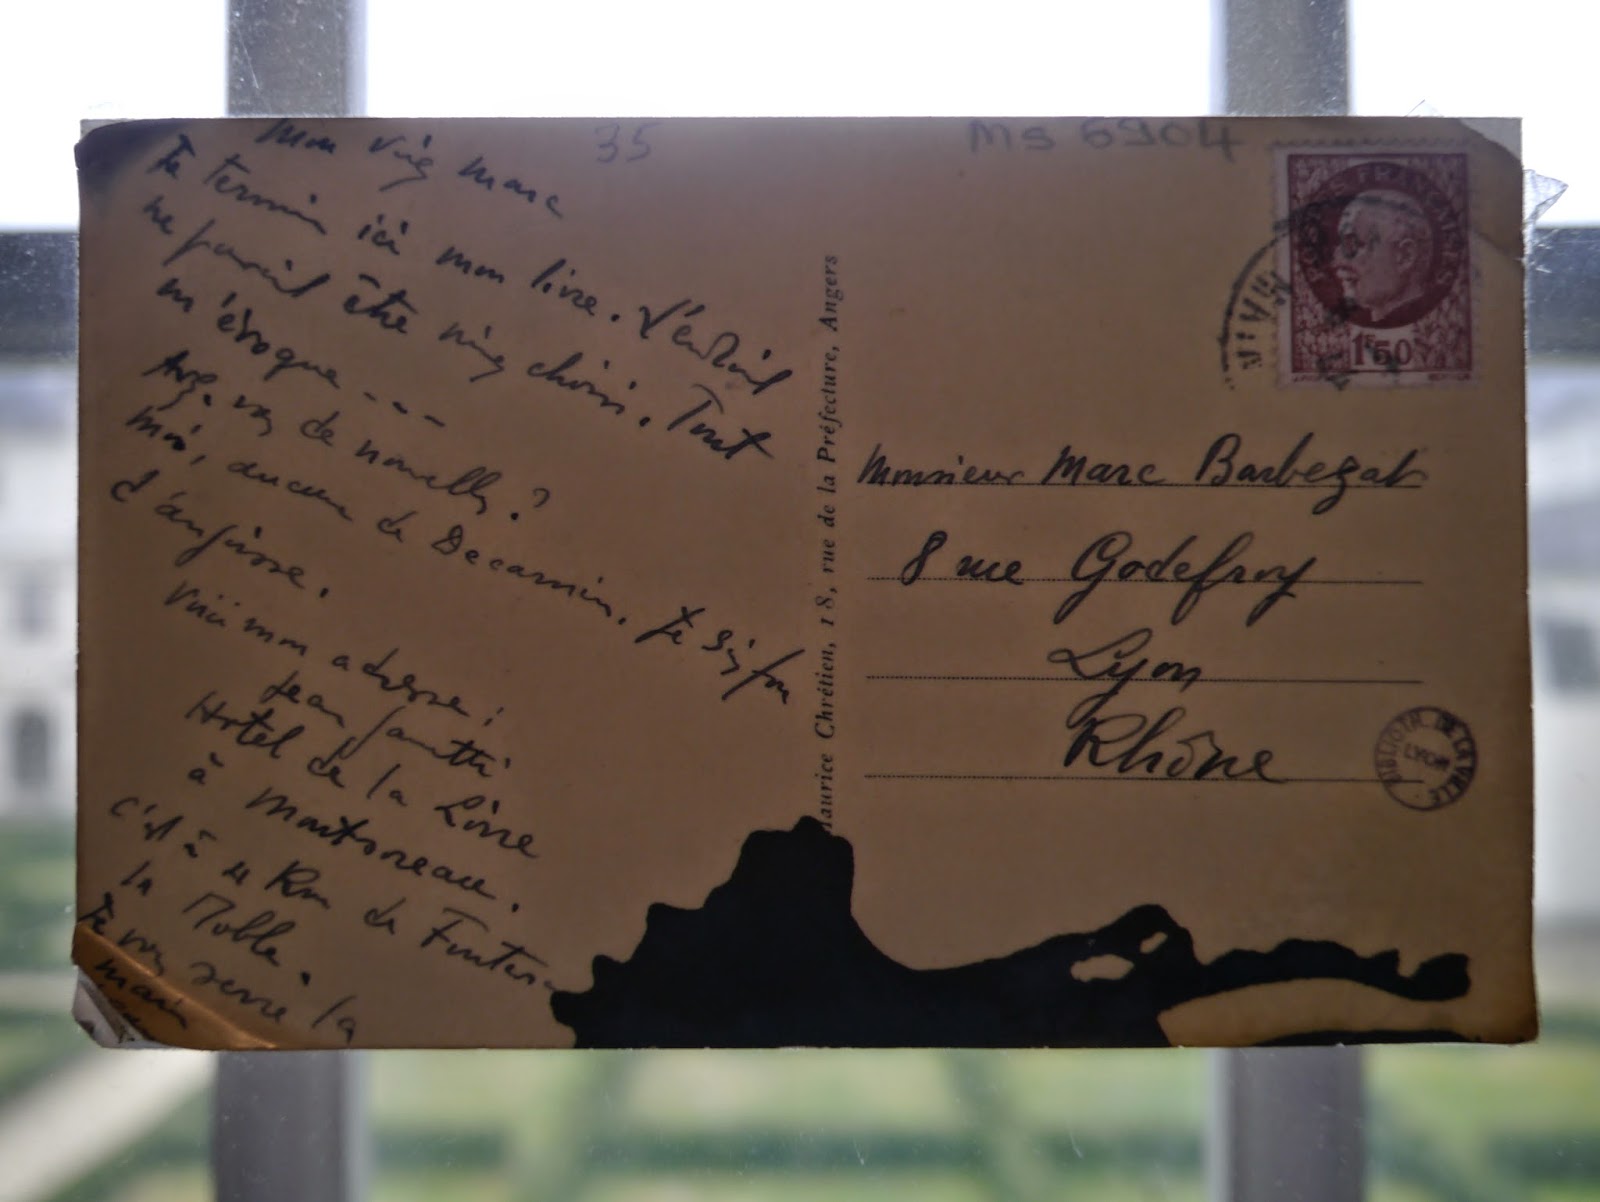 35
Ms 6904
Mon vieux Marc
Je termine ici mon livre. L'endroit
ne pouvait être mieux choisi. Tout
m'évoque - - -
Avez vous de nouvelles ?
Moi, aucune de Decarnin. Je suis fou
d'angoisse.
Voici mon adresse :
Jean
Hotel de la Loire
à Montsoreau.
c'est à 4 Km de Fontev
la
Je vous serre la
main
Maurice Chrétien, 18, rue de la Préfecture, Angers
POSTES FRANÇAISES
1F50
Monsieur Marc Barbezat
8 rue Godefroy
Lyon
Rhône
BIBLIOTH. DE LA VILLE
LYON